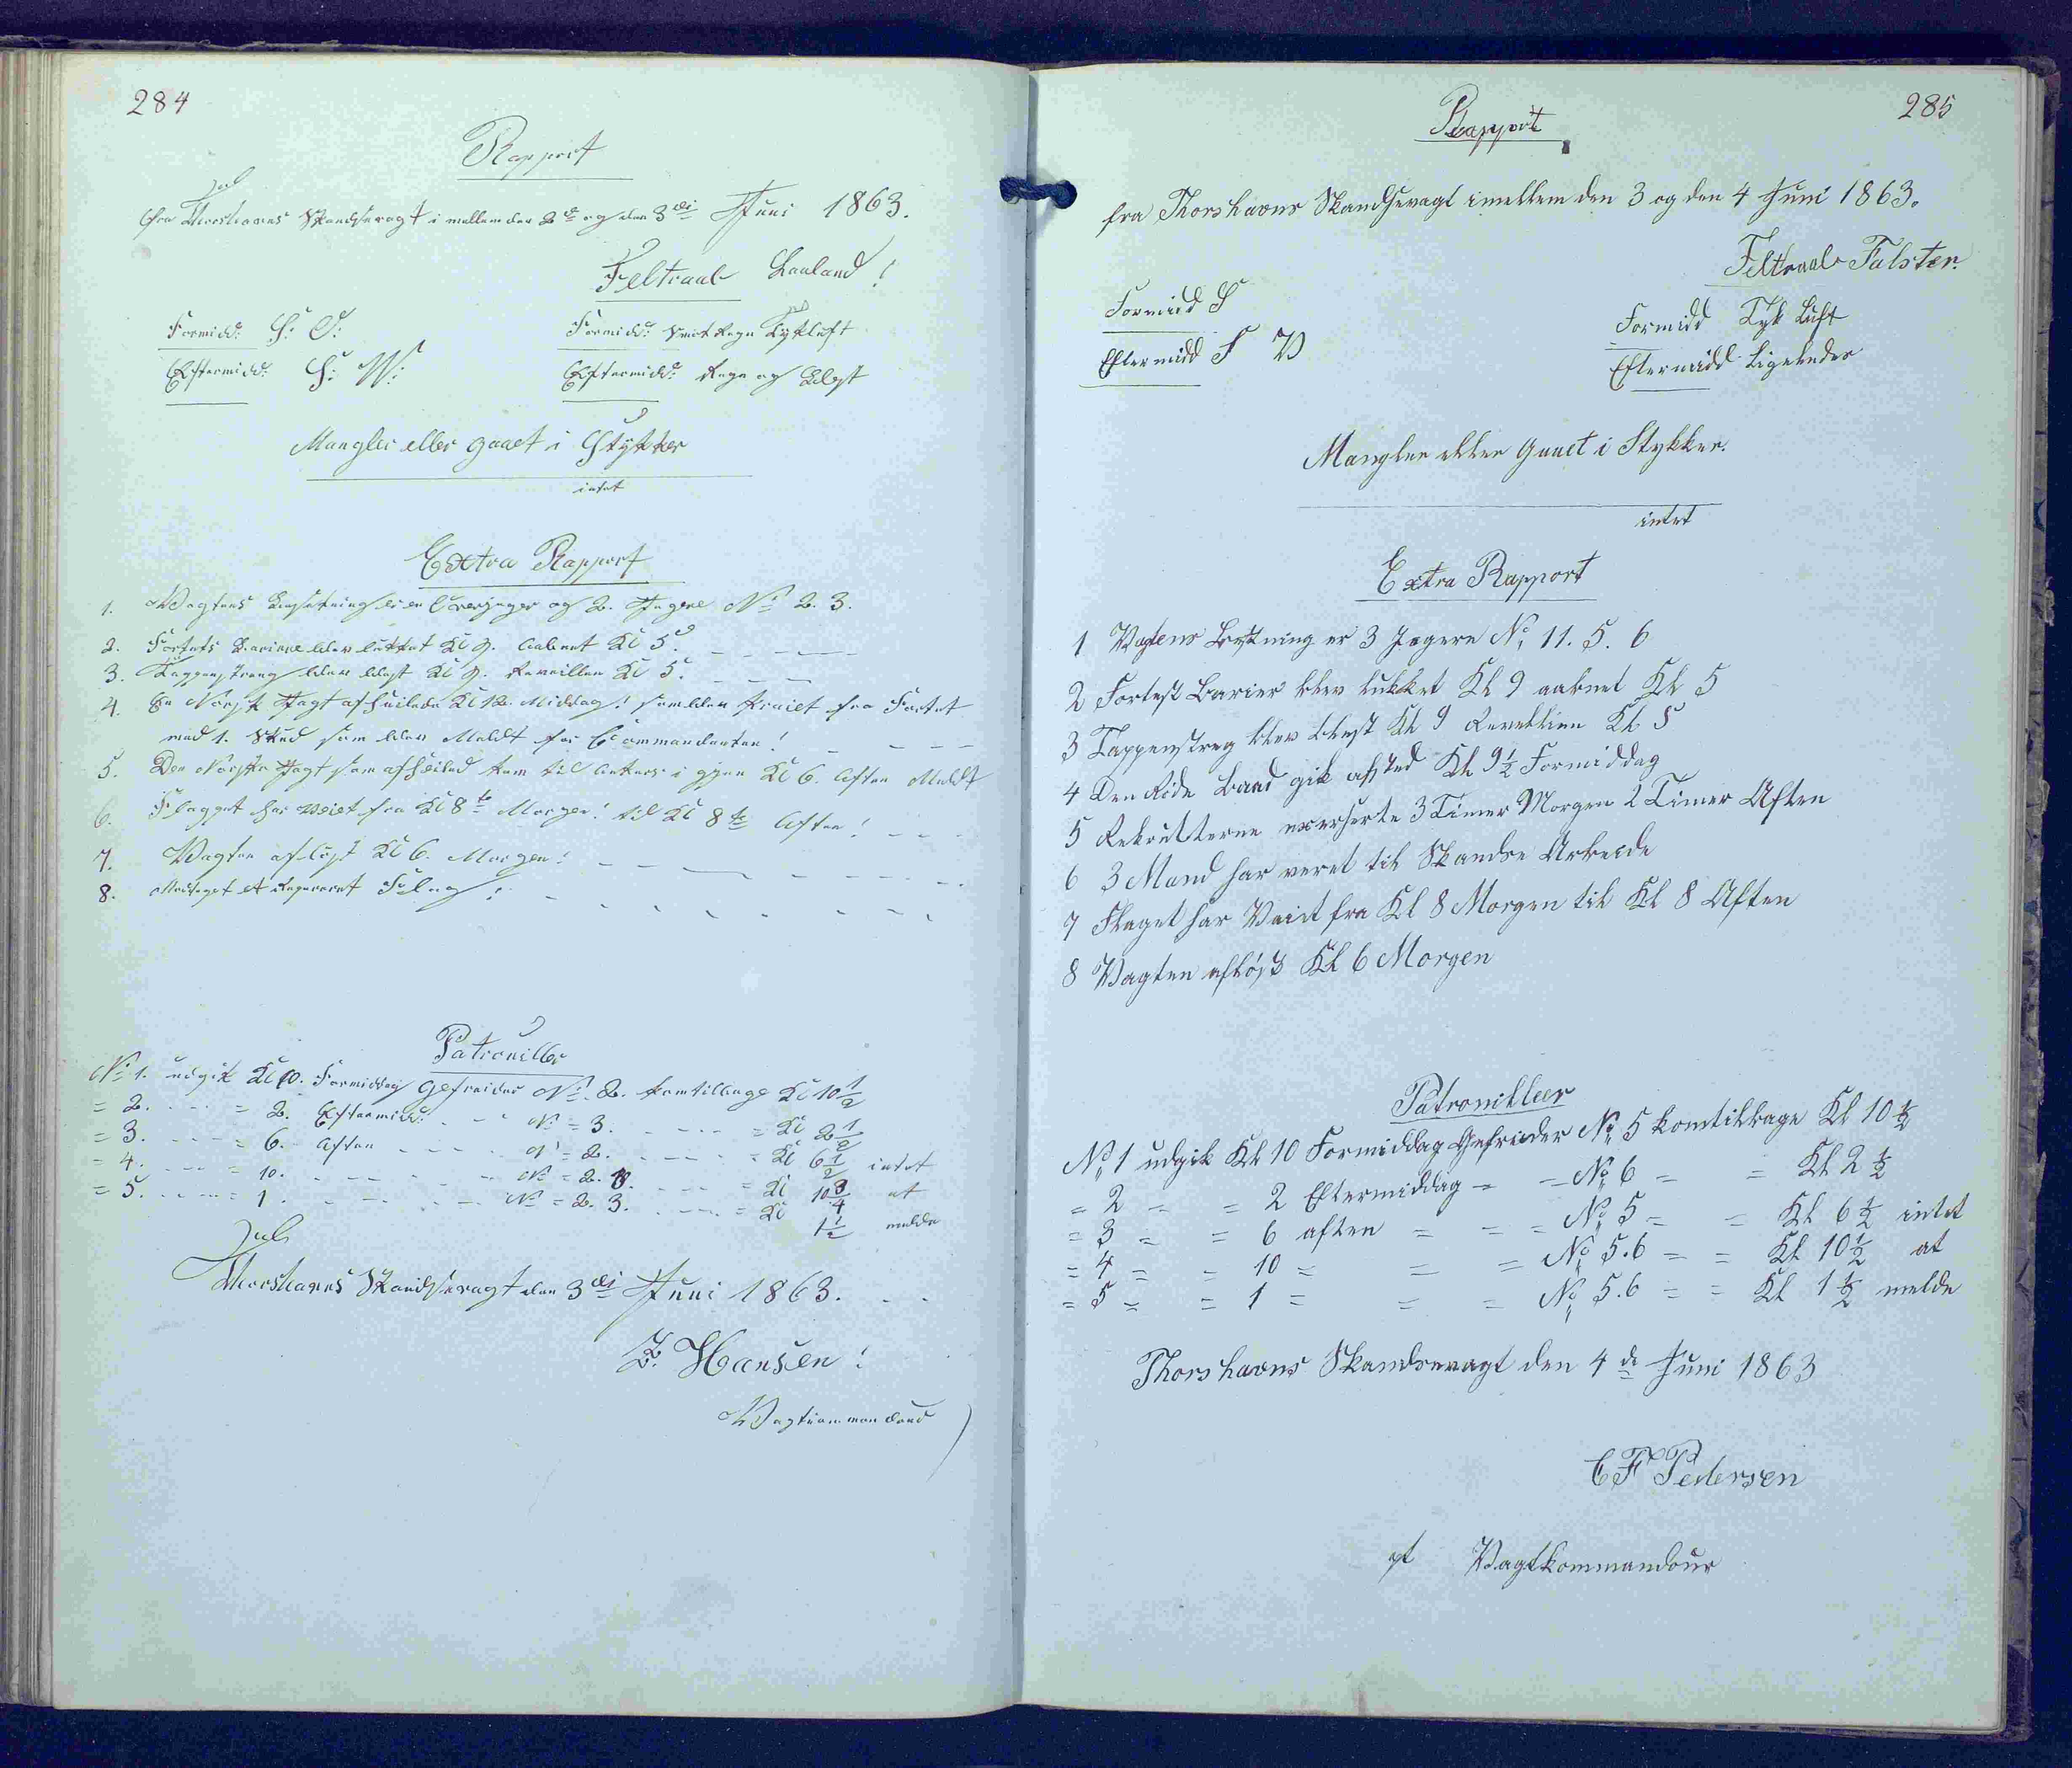 284
Rapport
fra Thorshavns Skandsevagt i mellem den 2de og den 3die Juni 1863.
Feltraab Laaland!
Formidd: S: O:
Formidd: Smat Regn Tykluft
Eftermidd: S: W:
Eftermidd: Regn og Blæst
Mangler eller gaaet i Stykker
intet
Extra Rapport
1. Vagtens Besætning er en Overjæger og 2. Jægere No 2. 3.
2. Fortets Bariere blev lukket Kl 9. aabnet Kl 5.
3. Tappenstreng blev blæst Kl 9. Reveillen Kl 5.
4. En Norsk Jagt afseilede Kl 12. Middag! som blev Praiet fra Fortet
med 1. Skud som blev Meldt for Commandanten!
5. Den Norske Jagt som afseiled kom til Ankers i gjen Kl 6. Aften Meldt
6. Flagget har Veiet fra Kl 8te Morgen! til Kl 8te Aften!
7. Vagten afløst Kl 6. Morgen!
8. Modtaget et Repareret Flag!
Patrouiller
No 1. udgik Kl 10. Formiddag Gefreider No 2. kom tilbage Kl 10 1/2
= 2. = 2. Eftermidd: No = 3. = Kl 2 1/2
= 3. = 6. Aften No = 2. = Kl 6 1/2 intet
= 4. = 10. No = 2. 3. = Kl 10 3/4 at
= 5. = 1. No = 2. 3. = Kl 1 1/2 melde
Thorshavns Skandsevagt den 3die Juni 1863.
Z. Hansen!
Vagtcommandeur
285
Rapport
fra Thorshavns Skandsevagt imellem den 3 og den 4 Juni 1863.
Feltraab Falster.
Formidd S
Formidd Tyk Luft
Eftermidd S V
Eftermidd Ligeledes
Mangler eller Gaaet i Stykker.
intet
Extra Rapport
1 Vagtens Besetning er 3 Jægere No 11. 5. 6
2 Fortest Barier blev lukket Kl 9 aabnet Kl 5
3 Tappenstreg blev blæst Kl 9 Revellien Kl 5
4 Den Ride Baad gik afsted Kl 9 1/2 Formiddag
5 Rekrutterne exerserte 3 Timer Morgen 2 Timer Aften
6 3 Mand har veret til Skandse Arbeide
7 Flaget har Vaiet fra Kl 8 Morgen til Kl 8 Aften
8 Vagten afløst Kl 6 Morgen
Patrouilleer
No 1 udgik Kl 10 Formiddag Gefrieder No 5 kom tilbage Kl 10 1/2
= 2 = = 2 Eftermiddag = = No 6 = = Kl 2 1/2
= 3 = = 6 aften = = = No 5 = = Kl 6 1/2 intet
= 4 = = 10 = = = No 5.6 = = Kl 10 1/2 at
= 5 = = 1 = = = No 5.6 = = Kl 1 1/2 melde
Thorshavns Skandsevagt den 4de Juni 1863
C F Pedersen
pt Vagtkommandour